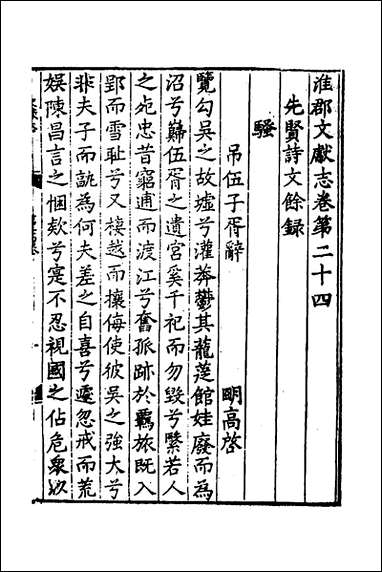 淮郡文獻志卷第二十四
先賢詩文餘録
騷
弔伍子胥辭
明高啓
覽勾吳之故墟兮灌莽鬱其龍蓯館娃廢而為
沼兮巋伍胥之遺宮奚千祀而勿毀兮繄若人
之㐫忠昔窮逋而渡江兮奮孤跡於羈旅既入
郢而雪耻兮又棲越而攘侮使彼吳之強大兮
非夫子而孰為何夫差之自喜兮遽忽戒而荒
娛陳昌言之悃欵兮寔不忍視國之佔危衆㳄